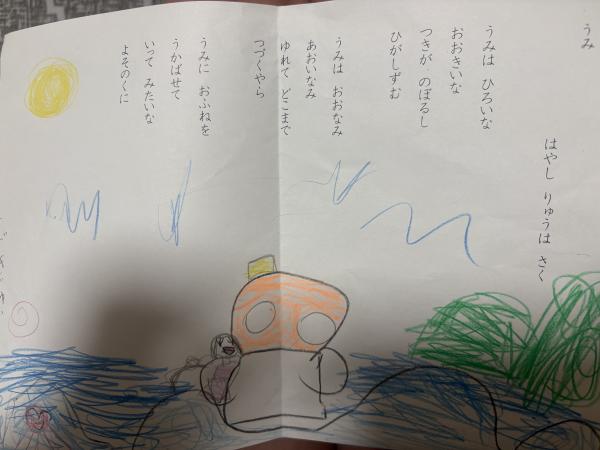 うみ
はやし りゅうは さく
うみは ひろいな
おおきいな
つきが のぼるし
ひがしずむ
うみは おおなみ
あおいなみ
ゆれて どこまで
つづくやら
うみに おふねを
うかばせて
いって みたいな
よそのくに